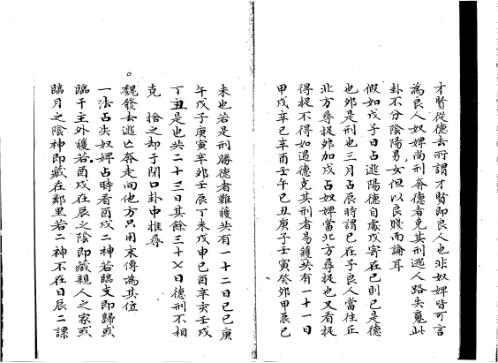 才賢從德去所謂才賢即良人也非奴婢皆可言
為良人奴婢尚刑眷德者克其刑遇人路失魔此
卦不分陰陽男女但以良賤而論耳
假如戊子日占逃陽德自處戊寄在巳則巳是德
也卯是刑也三月占辰時謂巳在子良人當往丘
北方尋捉卯加戌占奴婢當北方尋捉也又看捉
得捉不得如過德克其刑者易獲共有一十一日
甲戌辛巳辛酉壬午己丑庚子壬寅癸卯甲辰己
未也若是刑勝德者難獲共有一十二日己巳庚
午戊子庚寅辛卯壬辰丁未戊申己酉辛亥壬戌
丁丑是也共二十三日其餘三十七日德刑不相
克 捨之却于閉口卦中推尋
魏發去逃亡奔走向他方只用末傳為其位
一法占失奴婢占時看酉戌二神若臨支即歸或
臨干主外獲若酉戌在辰之陰即藏親人之家或
臨月之陰神即藏在鄰里若二神不在日辰二課